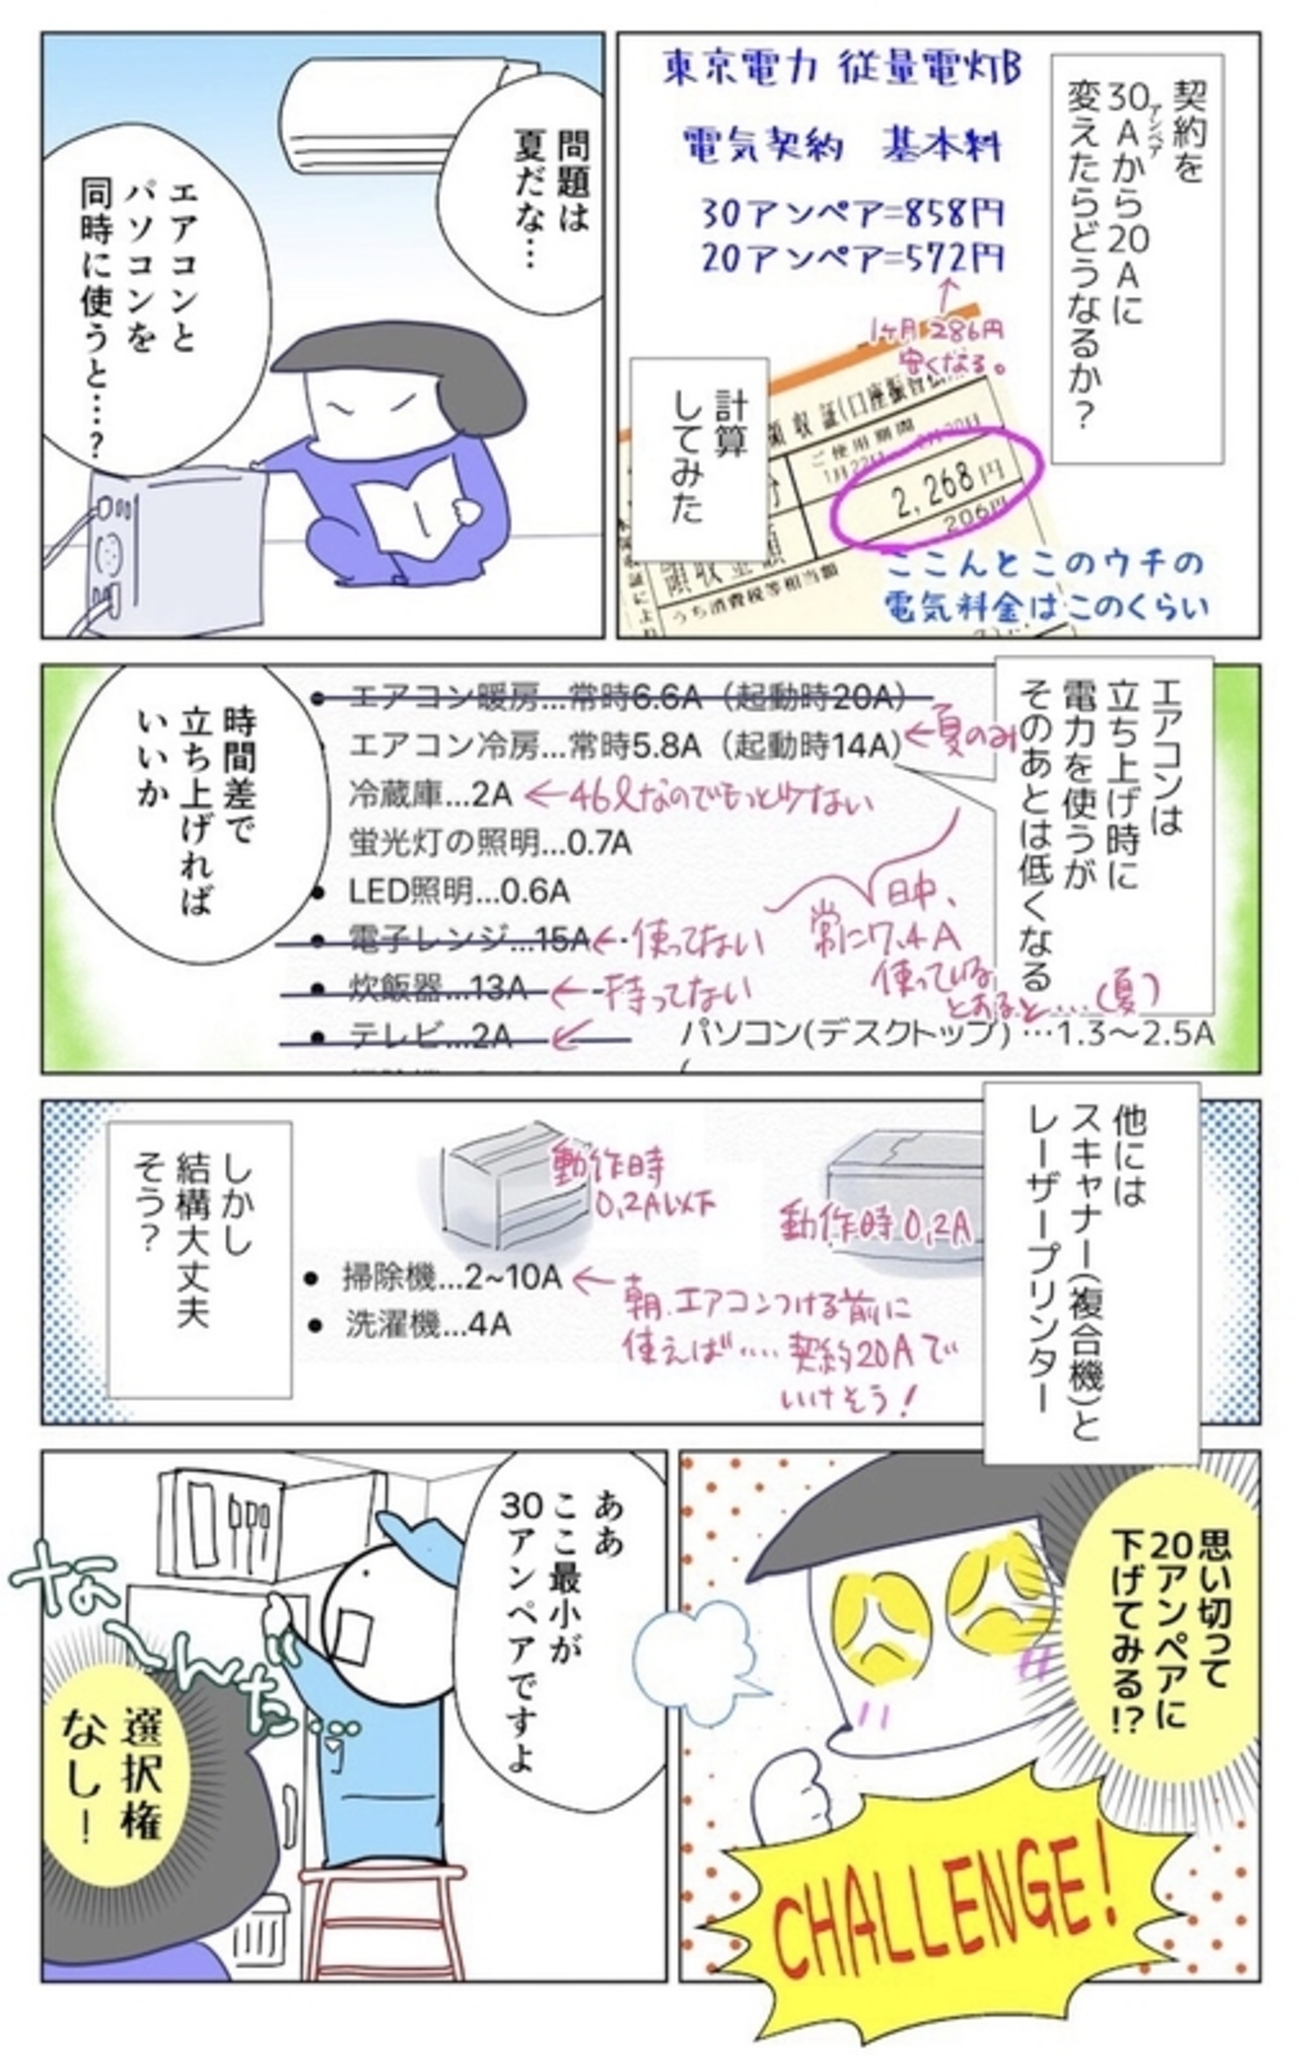 契約を
30Aから20Aに
アンペア
変えたらどうなるか？
東京電力 従量電灯B
電気契約 基本料
30アンペア=858円
20アンペア=572円
1ヶ月286円
安くなる。
計算
してみた
領収証(口座振替
ご使用期間
2,268円
206円
領収金額
うち消費税等相当額
ここんとこのウチの
電気料金はこのくらい
問題は
夏だな…
エアコンと
パソコンを
同時に使うと…？
エアコンは
立ち上げ時に
電力を使うが
そのあとは低くなる
エアコン暖房…常時6.6A（起動時20A）
エアコン冷房…常時5.8A（起動時14A）
←夏のみ
冷蔵庫…2A
←46ℓなのでもっと少ない
蛍光灯の照明…0.7A
LED照明…0.6A
電子レンジ…15A
←使ってない
炊飯器…13A
←持ってない
テレビ…2A
←
日中、
常に7.4A
使っている
とあると…(夏)
パソコン(デスクトップ)…1.3〜2.5A
時間差で
立ち上げれば
いいか
他には
スキャナー(複合機)と
レーザープリンター
動作時0.2A
動作時
0.2A以下
掃除機…2~10A
洗濯機…4A
←朝.エアコンつける前に
使えば‥‥契約20Aで
いけそう！
しかし
結構大丈夫
そう？
思い切って
20アンペアに
下げてみる!?
CHALLENGE!
ああ
ここ最小が
30アンペアですよ
な〜んだ…
選択権
なし！